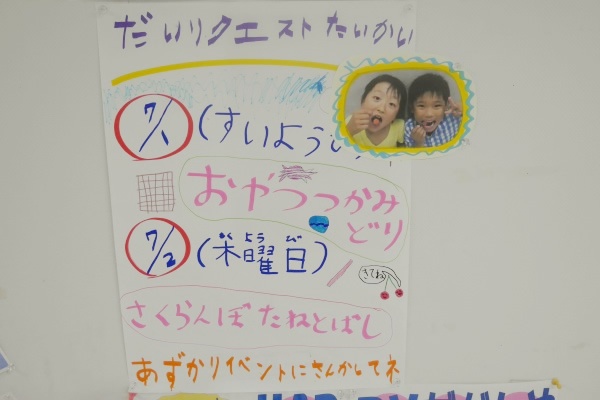 だいリクエストたいかい
7/1 (すいようび)
おやつつかみ
どり
7/2 (木曜日)
もく よう び
きてね
さくらんぼ たねとばし
あずかりイベントにさんかしてネ